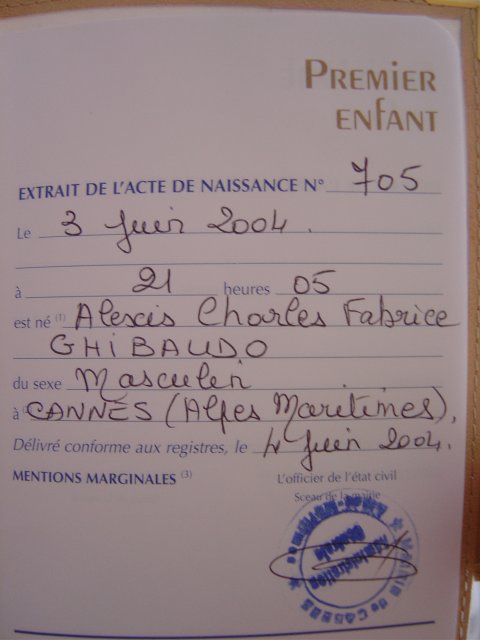 PREMIER
ENFANT
EXTRAIT DE L'ACTE DE NAISSANCE N° 705
Le 3 Juin 2004.
à 21 heures 05
est né (1) Alexis Charles Fabrice
GHIBAUDO
du sexe Masculin
à CANNES (Alpes Maritimes),
Délivré conforme aux registres, le 4 Juin 2004.
MENTIONS MARGINALES (3)
L'officier de l'état civil
Sceau de la mairie
MAIRIE de CANNES
Administration
Générale